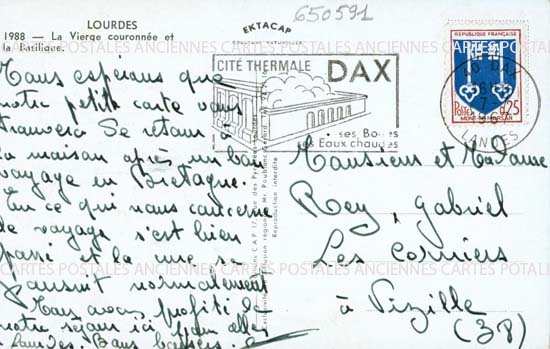 650591
LOURDES
1988 — La Vierge couronnée et
la Basilique.
EKTACAP
CITÉ THERMALE DAX
ses Boues
ses Eaux chaudes
REPUBLIQUE FRANÇAISE
POSTES 0,25
MONT-DE-MARSAN
40 DAX
LANDES
Reproduction interdite
Nous espérons que
notre petite carte vous
trouvera de retour à
la maison après un bon
voyage en Bretagne.
En ce qui nous concerne
le voyage s'est bien
passé et la cure se
poursuit normalement
Nous avons profité de
notre séjour ici pour aller
à Lourdes. Bons baisers
Monsieur et Madame
Rey Gabriel
Les Corniers
à Vizille
(38)
ANCIENNES CARTES POSTALES ANCIENNES CARTES POSTALES ANCIENNES CARTES POTALES